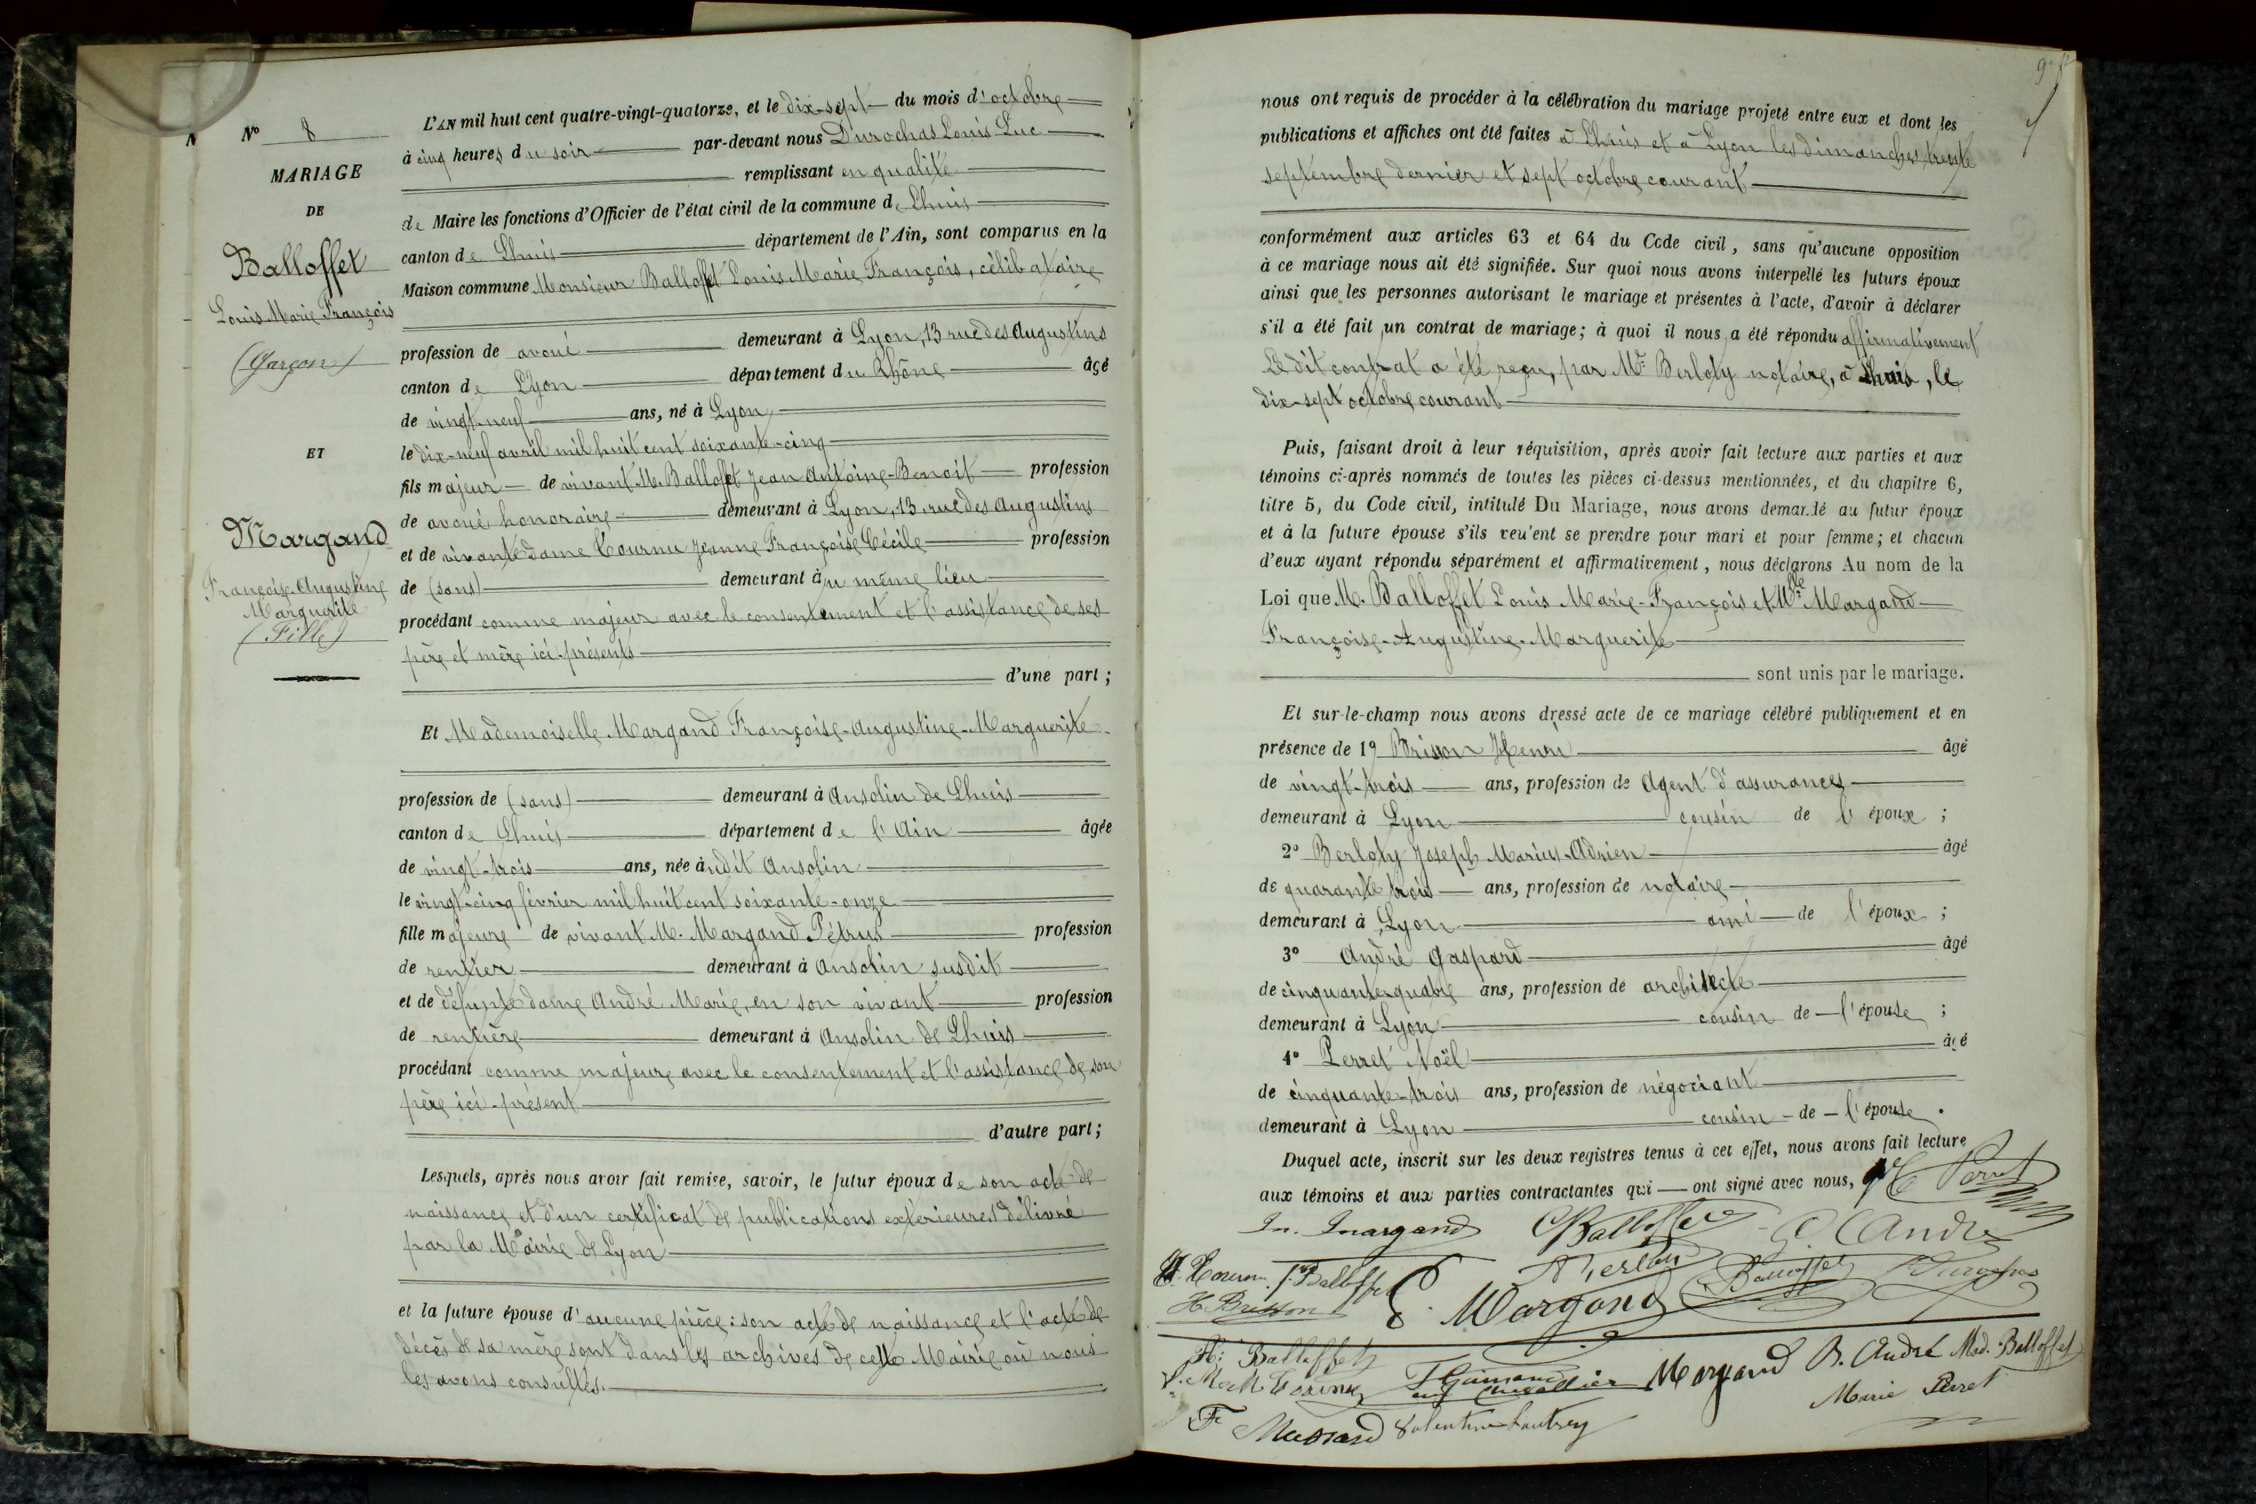 N
N° 8
MARIAGE
DE
Balloffet
Louis Marie François
(Garçon)
ET
Margand
Françoise-Augustine
Marguerite
(Fille)
L'AN mil huit cent quatre-vingt-quatorze, et le dix-sept du mois d'octobre
à cinq heures du soir par-devant nous Durochas Louis Luc
remplissant en qualité
de Maire les fonctions d'Officier de l'état civil de la commune de Lhuis
canton de Lhuis département de l'Ain, sont comparus en la
Maison commune Monsieur Balloffet Louis Marie François, célibataire
profession de avoué demeurant à Lyon, 13 rue des Augustins
canton de Lyon département du Rhône âgé
de vingt-neuf ans, né à Lyon,
le dix-neuf avril mil huit cent soixante-cinq
fils majeur de vivant M. Balloffet Jean Antoine-Benoit profession
de avoué honoraire demeurant à Lyon, 13 rue des Augustins
et de vivante dame Cournu Jeanne Françoise Cécile profession
de (sans) demeurant au même lieu
procédant comme majeur avec le consentement et l'assistance de ses
père et mère ici-présents
d'une part ;
Et Mademoiselle Margand Françoise-Augustine-Marguerite
profession de (sans) demeurant à Ansolin de Lhuis
canton de Lhuis département de l'Ain âgée
de vingt-trois ans, née audit Ansolin
le vingt-cinq février mil huit cent soixante-onze
fille majeure de vivant M. Margand Pétrus profession
de rentier demeurant à Ansolin susdit
et de défunte dame André Marie, en son vivant profession
de rentière demeurant à Ansolin de Lhuis
procédant comme majeure avec le consentement et l'assistance de son
père ici-présent
d'autre part ;
Lesquels, après nous avoir fait remise, savoir, le futur époux de son acte de
naissance et d'un certificat de publications extérieures délivré
par la Mairie de Lyon
et la future épouse d'aucune pièce : son acte de naissance et l'acte de
décès de sa mère sont dans les archives de cette Mairie où nous
les avons consultés.
nous ont requis de procéder à la célébration du mariage projeté entre eux et dont les
publications et affiches ont été faites à Lhuis et à Lyon les dimanches trente
septembre dernier et sept octobre courant
conformément aux articles 63 et 64 du Code civil, sans qu'aucune opposition
à ce mariage nous ait été signifiée. Sur quoi nous avons interpellé les futurs époux
ainsi que les personnes autorisant le mariage et présentes à l'acte, d'avoir à déclarer
s'il a été fait un contrat de mariage ; à quoi il nous a été répondu affirmativement
Ledit contrat a été reçu, par Me Berloty notaire, à Lhuis, le
dix-sept octobre courant
Puis, faisant droit à leur réquisition, après avoir fait lecture aux parties et aux
témoins ci-après nommés de toutes les pièces ci-dessus mentionnées, et du chapitre 6,
titre 5, du Code civil, intitulé Du Mariage, nous avons demandé au futur époux
et à la future épouse s'ils veulent se prendre pour mari et pour femme ; et chacun
d'eux ayant répondu séparément et affirmativement, nous déclarons Au nom de la
Loi que M. Balloffet Louis Marie-François et Mlle Margand
Françoise-Augustine-Marguerite
sont unis par le mariage.
Et sur-le-champ nous avons dressé acte de ce mariage célébré publiquement et en
présence de 1° Brisson Henri âgé
de vingt-trois ans, profession de Agent d'assurances
demeurant à Lyon cousin de l'époux ;
2° Berloty Joseph Marius-Adrien âgé
de quarante trois ans, profession de notaire
demeurant à Lyon ami de l'époux ;
3° André Gaspard âgé
de cinquante-quatre ans, profession de architecte
demeurant à Lyon cousin de l'épouse ;
4° Perret Noël âgé
de cinquante-trois ans, profession de négociant
demeurant à Lyon cousin de l'épouse.
Duquel acte, inscrit sur les deux registres tenus à cet effet, nous avons fait lecture
aux témoins et aux parties contractantes qui ont signé avec nous, Perret
M. Margand Balloffet G. André
Balloffet Berloty Balloffet
H. Brisson Margand
Balloffet Margand B. André Mad. Balloffet
Marie Perret
Valentine